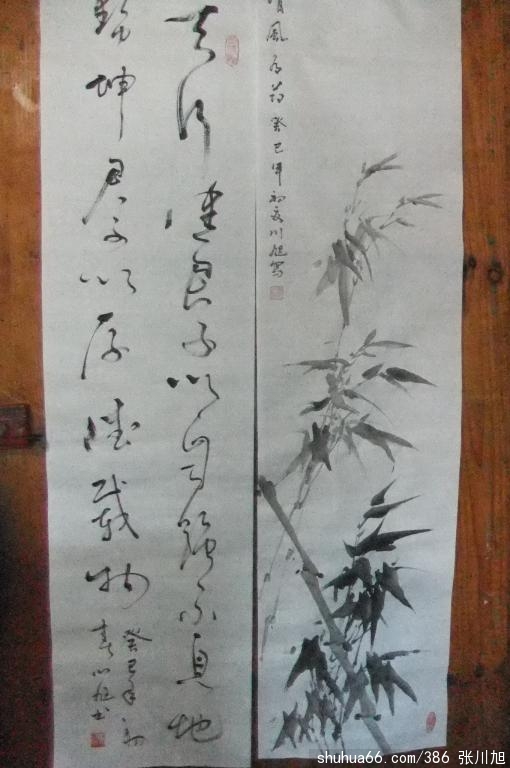 風
癸巳年初夏川旭写
天行健君子以自強不息地
勢坤君子以厚德載物
癸巳年初
春川旭书
shuhua66.com/386 张川旭